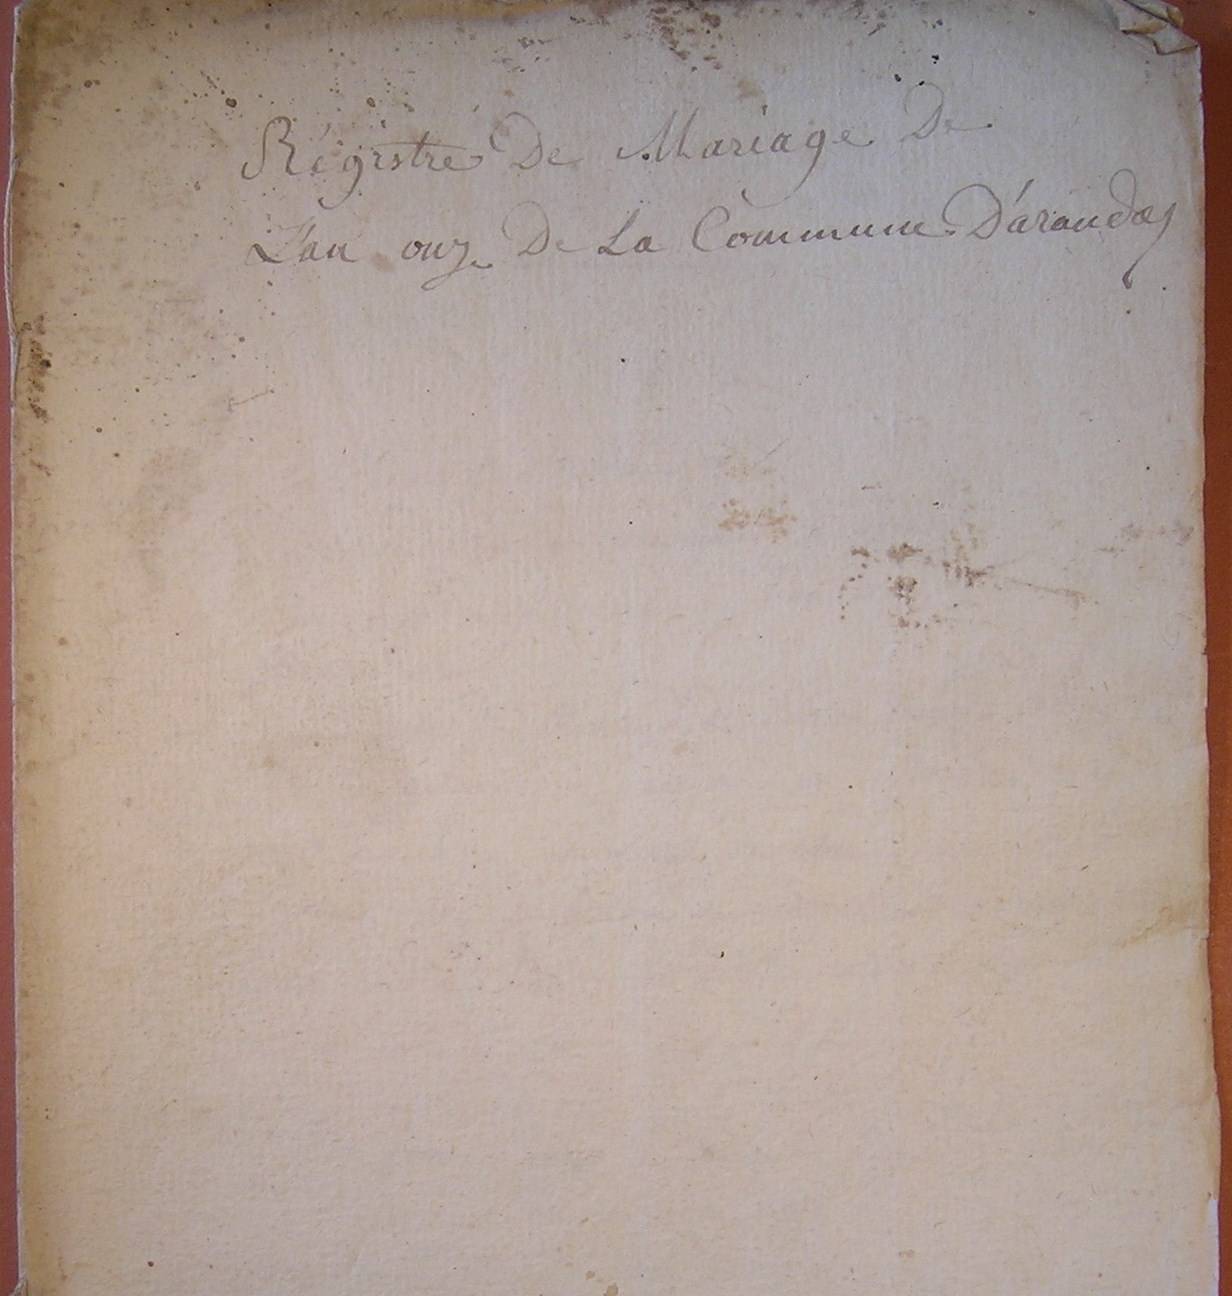 Régistre De Mariage De
L'an onze De La Commune D'arandas